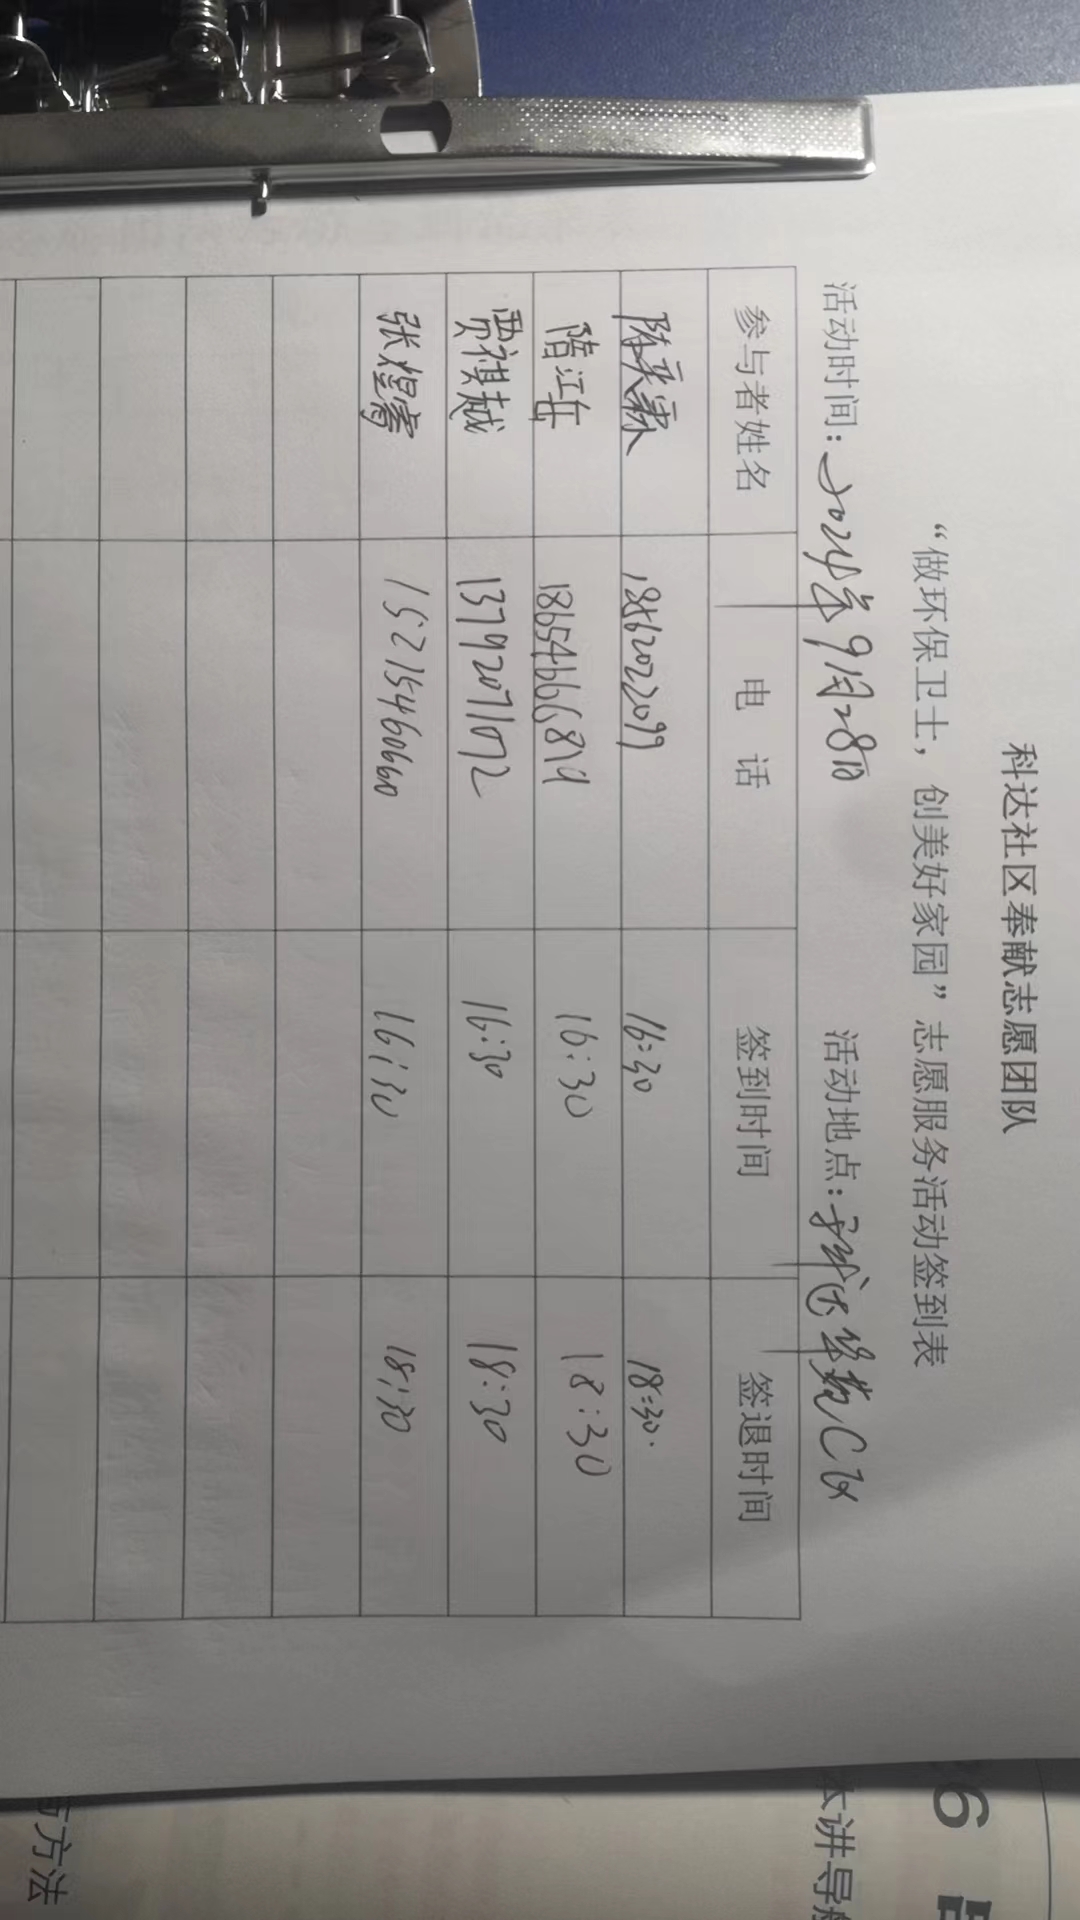 科达社区奉献志愿团队
“做环保卫士，创美好家园”志愿服务活动签到表
活动时间：2024年9月28日 活动地点：科达华苑C区
参与者姓名 电 话 签到时间 签退时间
陈奕霖 18562022099 16:30 18:30.
隋江岳 18654666814 16:30 18:30
贾祺越 13792071072 16:30 18:30
张煜骞 15215460660 16:30 18:30
方法